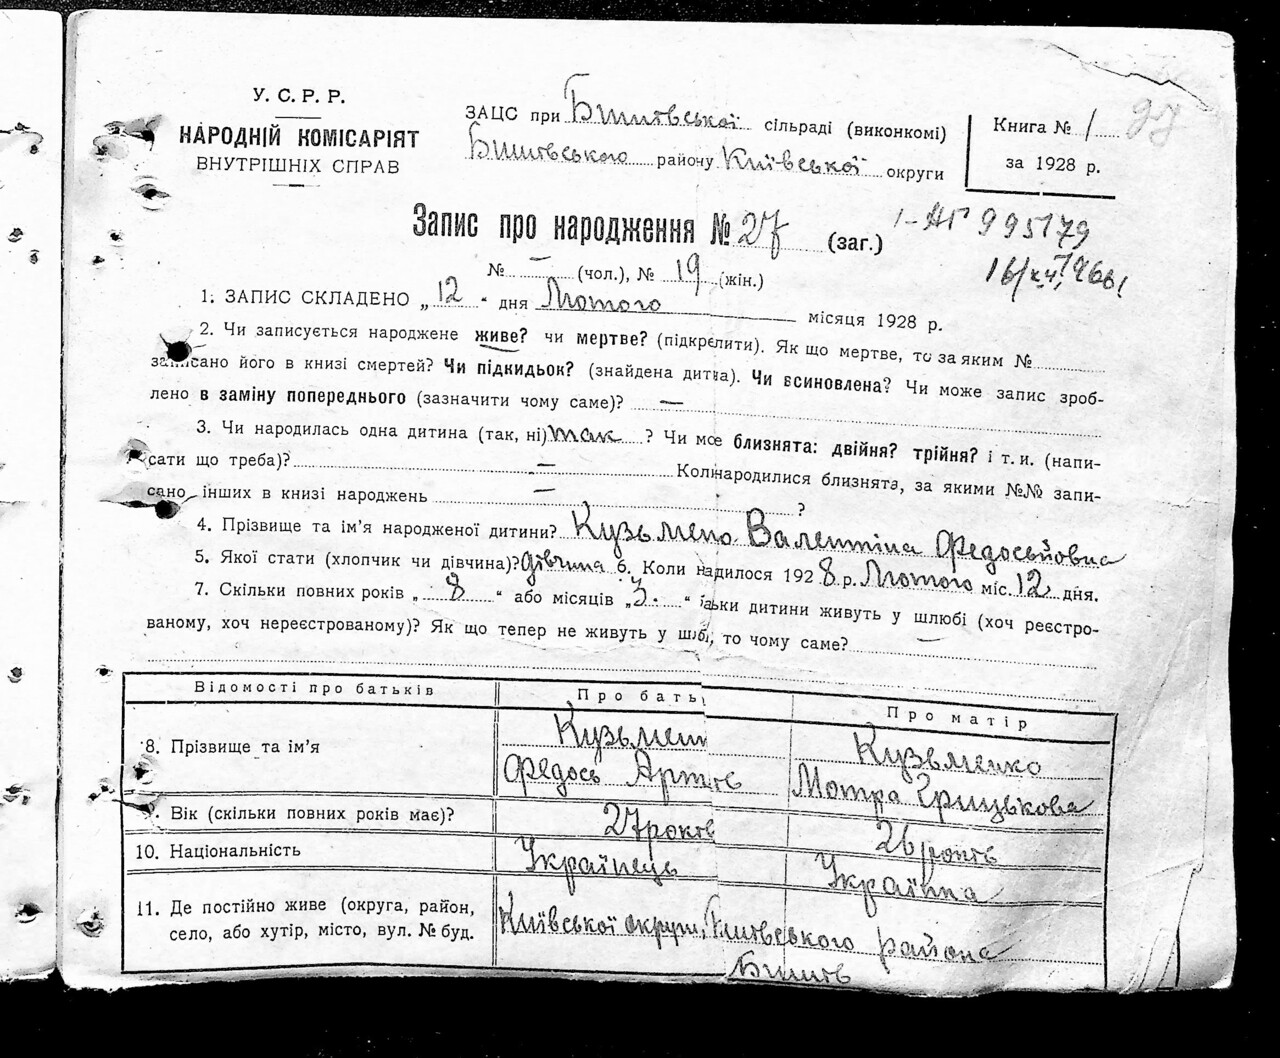 У. С. Р. Р.
НАРОДНІЙ КОМІСАРІЯТ
ВНУТРІШНІХ СПРАВ
ЗАЦС при Бишівської сільраді (виконкомі)
Бишівського району Київської округи
Книга № 1
за 1928 р.
27
Запис про народження № 27 (заг.)
І-АГ 995179
№ — (чол.), № 19 (жін.)
1. ЗАПИС СКЛАДЕНО „ 12 " дня Лютого місяця 1928 р.
2. Чи записується народжене живе? чи мертве? (підкрелити). Як що мертве, то за яким №
записано його в книзі смертей? Чи підкидьок? (знайдена дитна). Чи всиновлена? Чи може запис зроб-
лено в заміну попереднього (зазначити чому саме)? —
3. Чи народилась одна дитина (так, ні) так ? Чи мое близнята: двійня? трійня? і т. и. (напи-
сати що треба)? — Колнародилися близнята, за якими №№ запи-
сано інших в книзі народжень — ?
4. Прізвище та ім'я народженої дитини? Кузьмено Валентіна Федосьйовна
5. Якої стати (хлопчик чи дівчина)? дівчина 6. Коли надилося 1928 р. Лютого міс. 12 дня.
7. Скільки повних років „ 8 " або місяців „ 3. " батьки дитини живуть у шлюбі (хоч реєстро-
ваному, хоч нереєстрованому)? Як що тепер не живуть у шлюбі, то чому саме? —
Відомості про батьків Про бать Про матір
8. Прізвище та ім'я Кузьмен Кузьменко
Федось Артів Мотра Грицькова
9. Вік (скільки повних років має)? 27 років 26 років
10. Національність Українець Українка
11. Де постійно живе (округа, район, Київської округи, Бишівського района
село, або хутір, місто, вул. № буд. Бишів